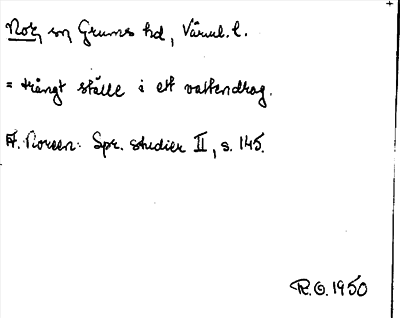 Nor, sn Grums hd, Värml. l.
= trångt ställe i ett vattendrag.
A. Noreen: Spr. studier II, s. 145.
R.O. 1950